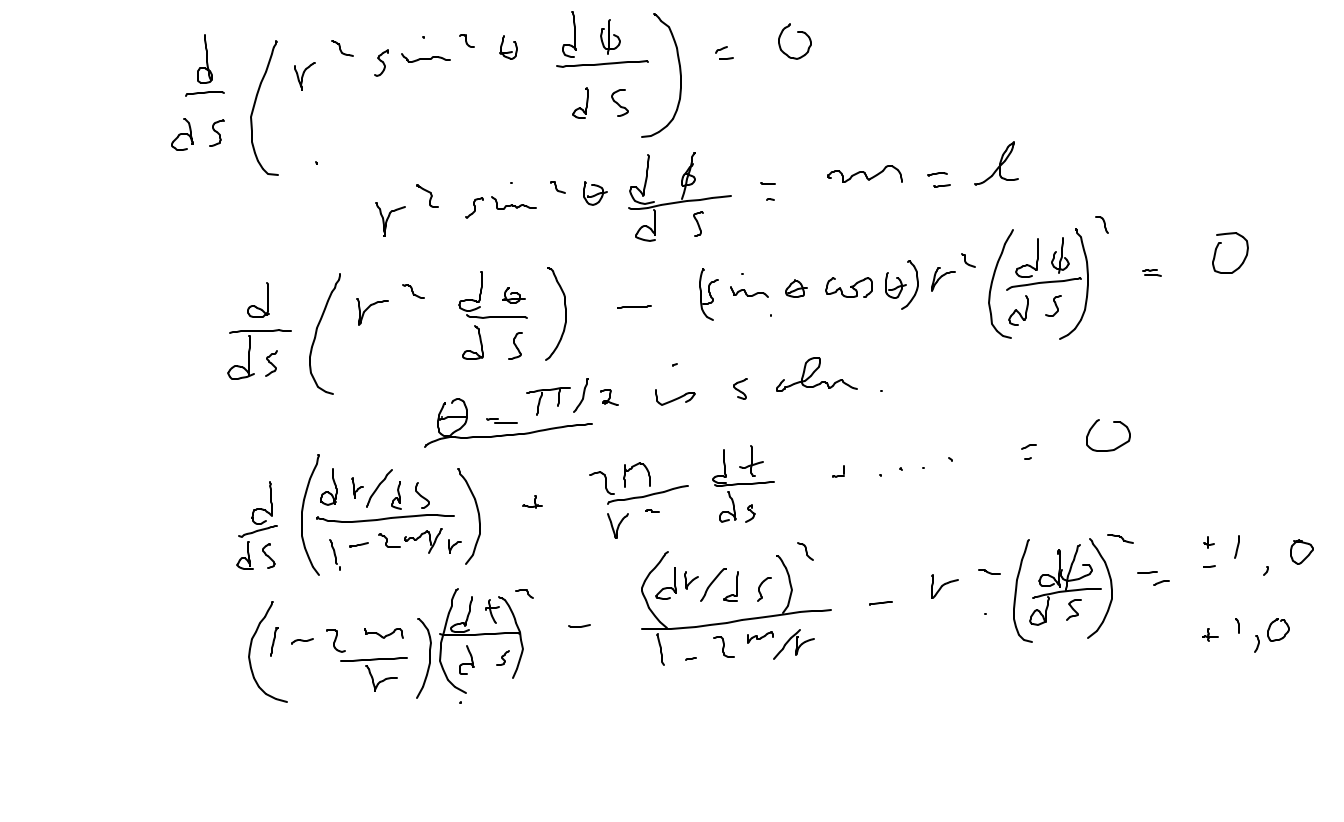 d/ds ( r² sin² θ dϕ/ds ) = 0
r² sin² θ dϕ/ds = m = l
d/ds ( r² dθ/ds ) − (sin θ cos θ) r² (dϕ/ds)² = 0
θ = π/2 is soln.
d/ds ( (dr/ds)/(1 − 2m/r) ) + 2m/r² dt/ds + .... = 0
(1 − 2m/r) (dt/ds)² − (dr/ds)²/(1 − 2m/r) − r² (dϕ/ds)² = ±1, 0
+1, 0